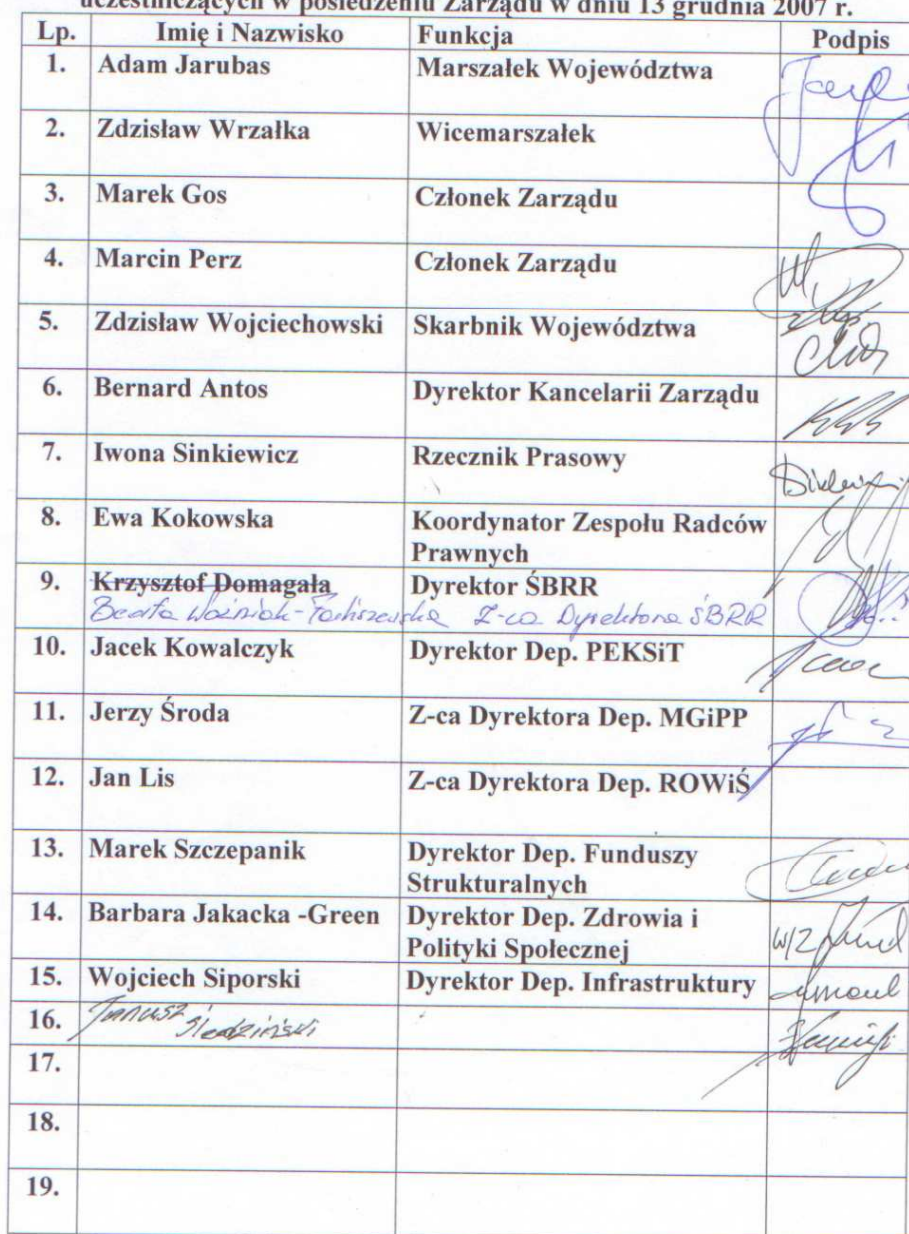 uczestniczących w posiedzeniu Zarządu w dniu 13 grudnia 2007 r.
Lp. Imię i Nazwisko Funkcja Podpis
1. Adam Jarubas Marszałek Województwa
2. Zdzisław Wrzałka Wicemarszałek
3. Marek Gos Członek Zarządu
4. Marcin Perz Członek Zarządu
5. Zdzisław Wojciechowski Skarbnik Województwa
6. Bernard Antos Dyrektor Kancelarii Zarządu
7. Iwona Sinkiewicz Rzecznik Prasowy
8. Ewa Kokowska Koordynator Zespołu Radców
Prawnych
9. Krzysztof Domagała Dyrektor ŚBRR
Beata Woźniak- Z-ca Dyrektora ŚBRR
10. Jacek Kowalczyk Dyrektor Dep. PEKSiT
11. Jerzy Środa Z-ca Dyrektora Dep. MGiPP
12. Jan Lis Z-ca Dyrektora Dep. ROWiŚ
13. Marek Szczepanik Dyrektor Dep. Funduszy
Strukturalnych
14. Barbara Jakacka -Green Dyrektor Dep. Zdrowia i
Polityki Społecznej w/z
15. Wojciech Siporski Dyrektor Dep. Infrastruktury
16. Janusz
17.
18.
19.